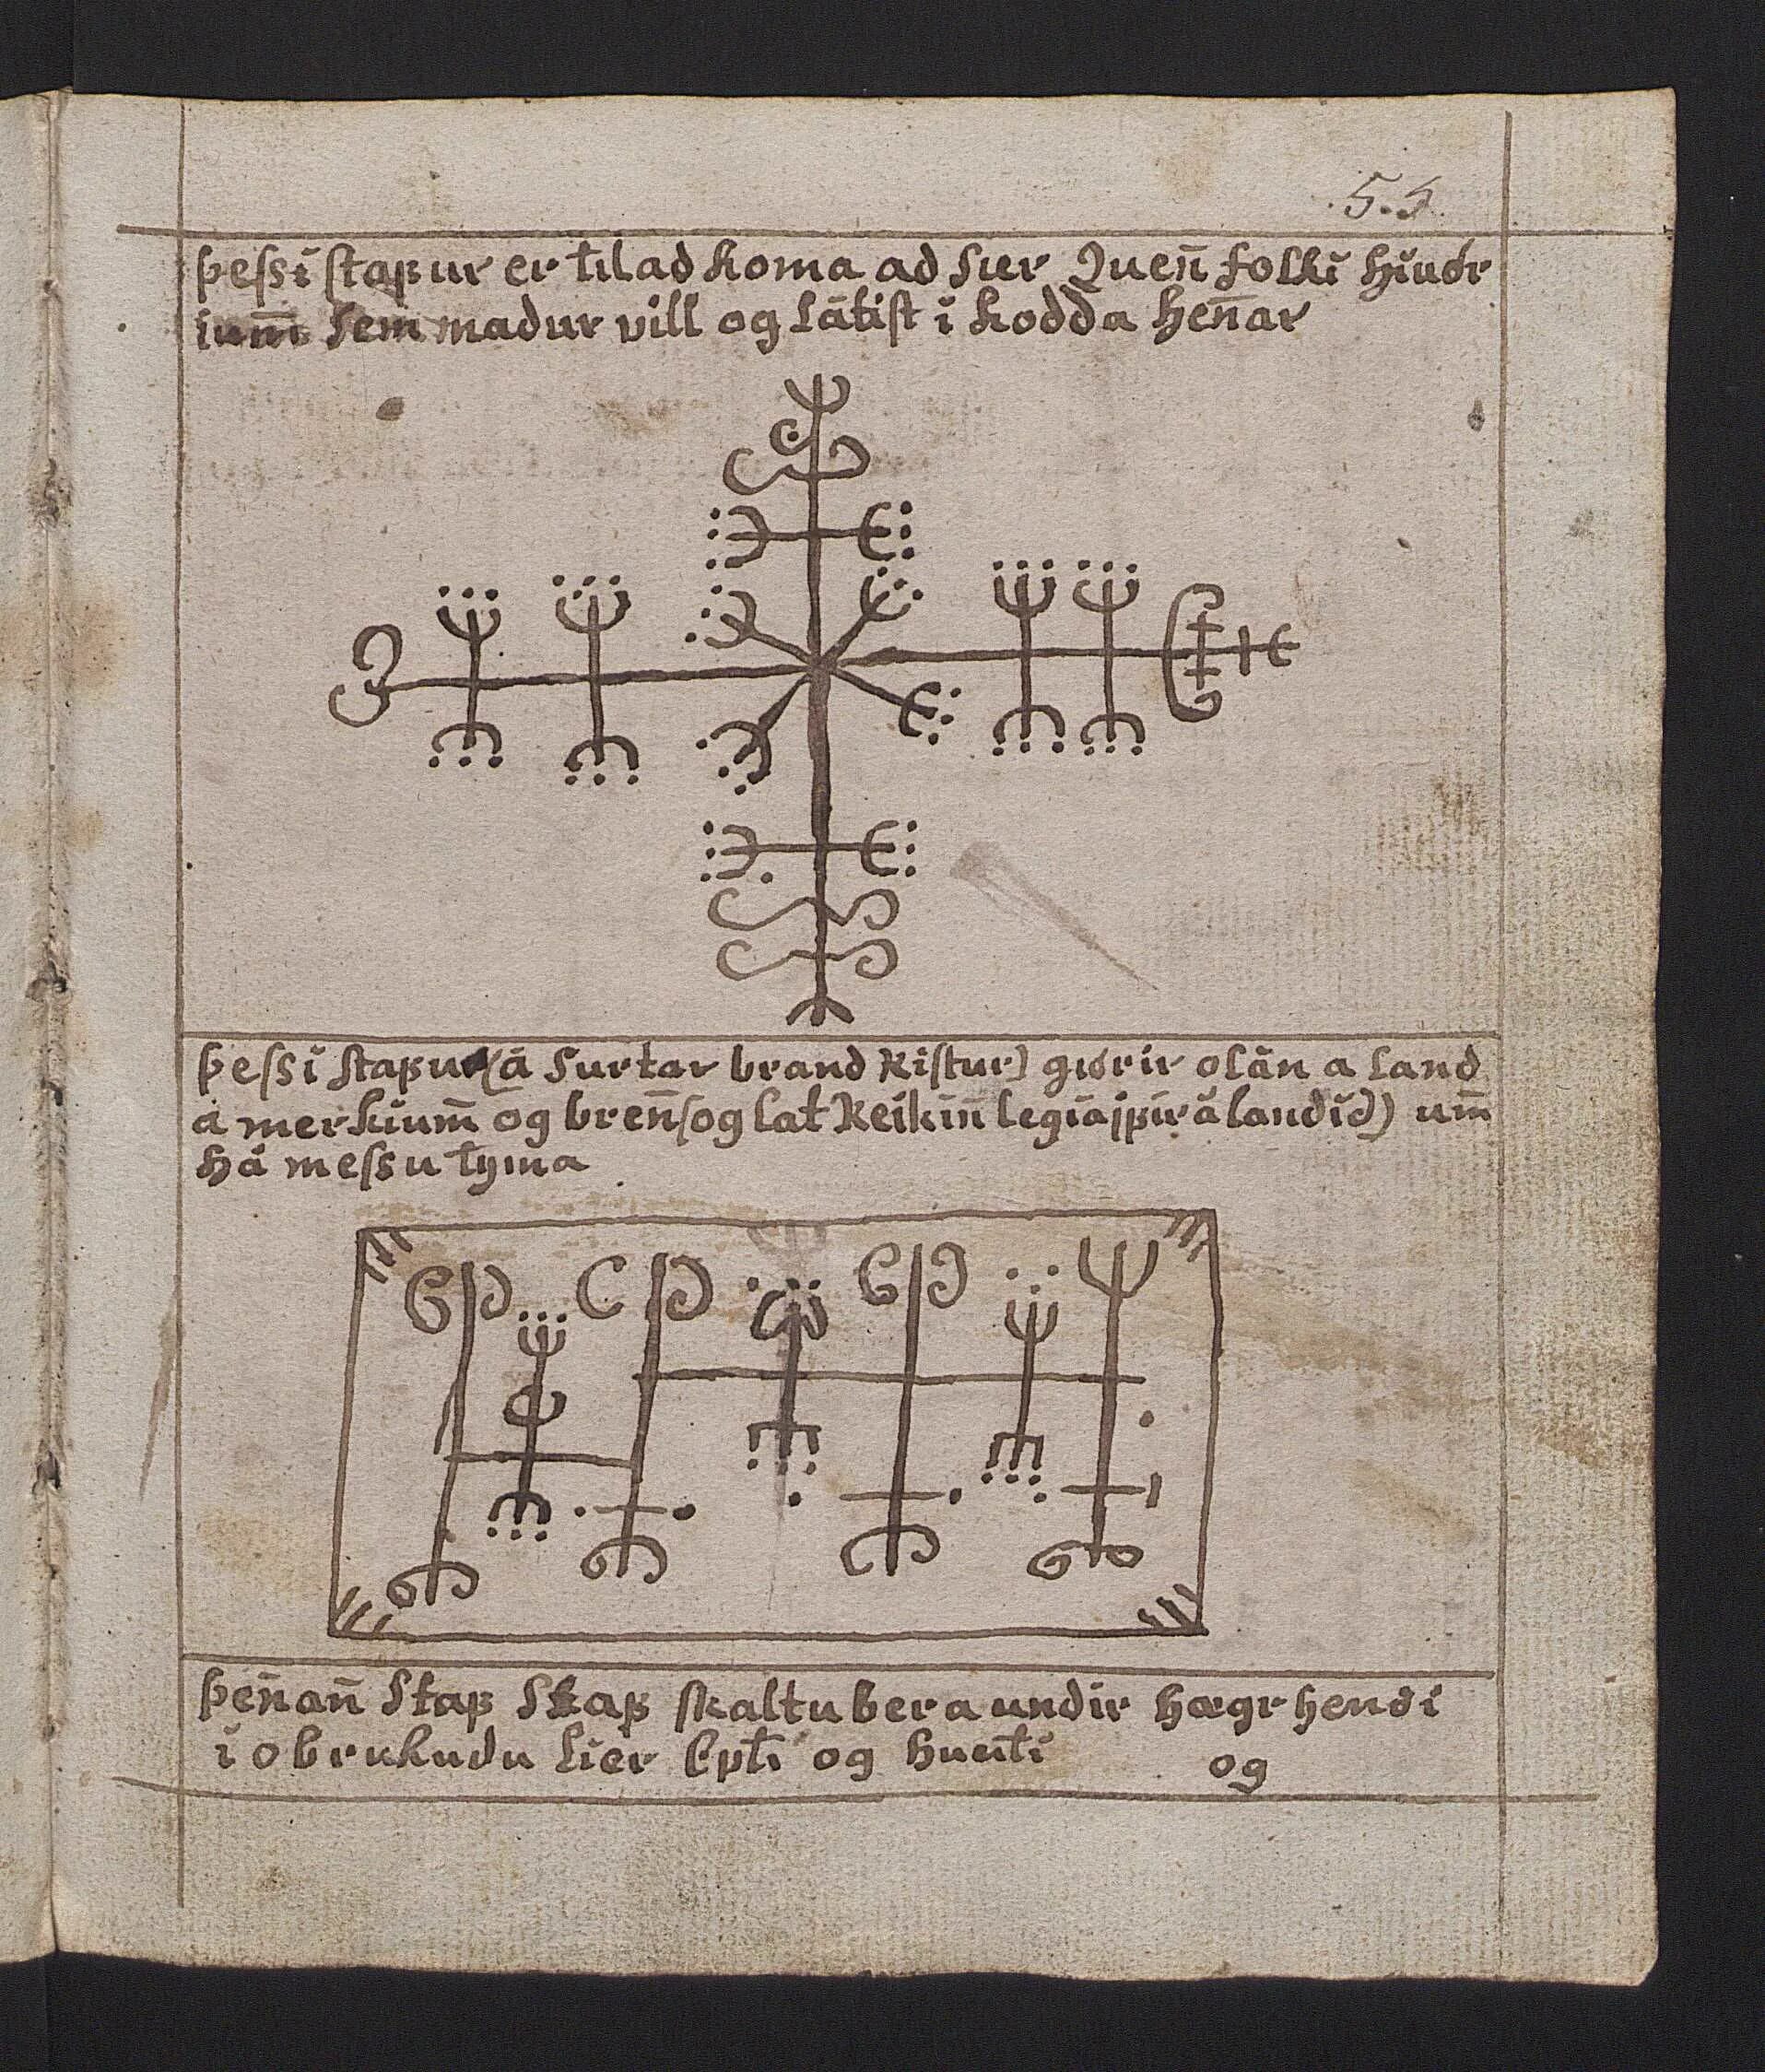 55
þessi stafur er til ad koma ad sier Quen̄ folki hiuór
ium̄ sem madur vill og látist i kodda hen̄ar
þessi stafur (á surtar brand ristur) giórir olán a land
a merkium̄ og bren̄ (og lat Reikin̄ legia ifir á landid) um̄
há messu tyma
þen̄an̄ staf skaltu bera undir hægr hendi
i obrukudu lier epti og huiti og